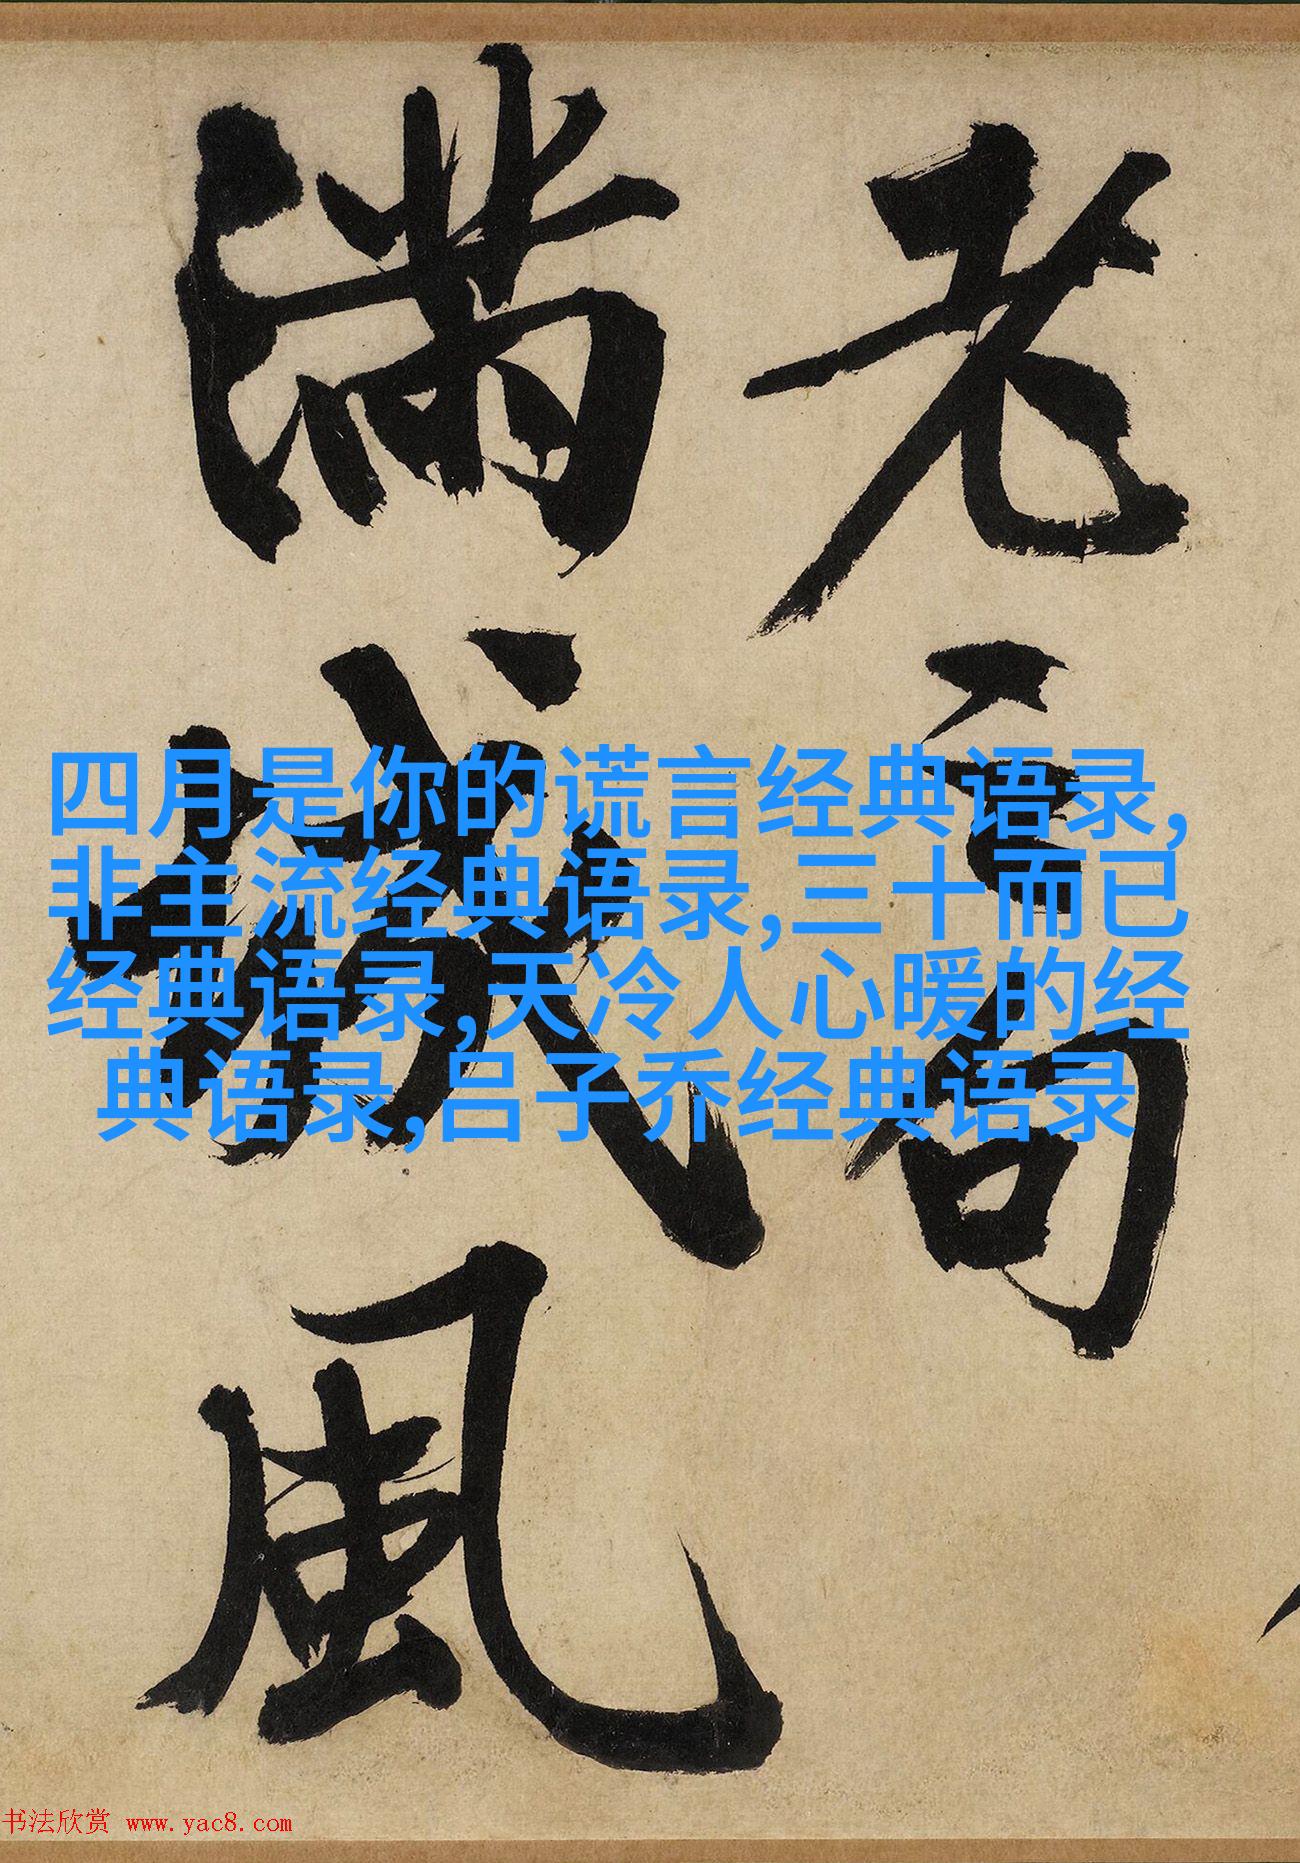 老句
滿城風
四月是你的谎言经典语录,
非主流经典语录,三十而已
经典语录,天冷人心暖的经
典语录,吕子乔经典语录
书法欣赏 www.yac8.com